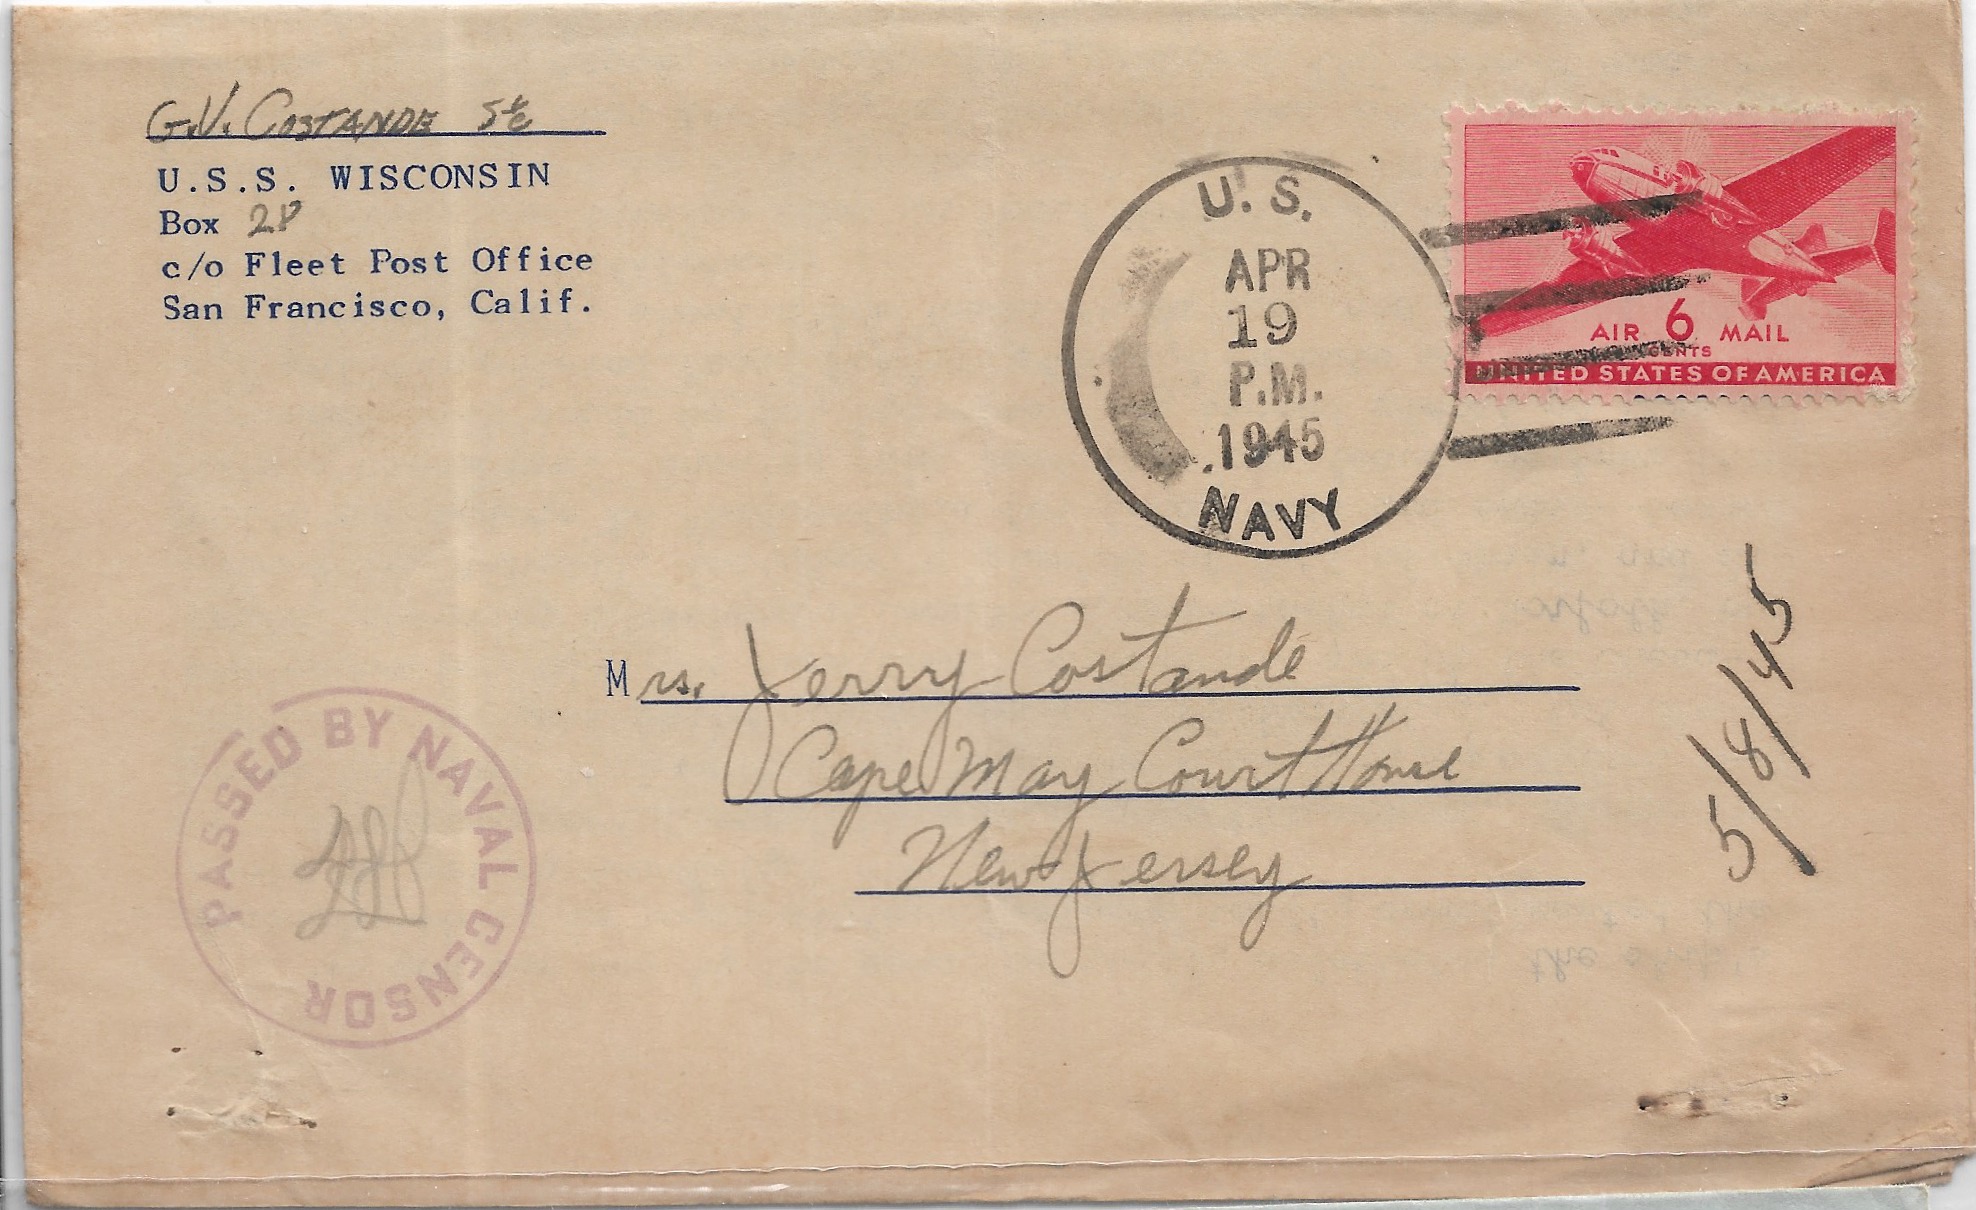 G.V. COSTANDE S1/c
U.S.S. WISCONSIN
Box 28
c/o Fleet Post Office
San Francisco, Calif.
U.S.
APR
19
P.M.
1945
NAVY
AIR 6 MAIL
CENTS
UNITED STATES OF AMERICA
Mrs. Jerry Costande
Cape May Court House
New Jersey
5/8/45
PASSED BY NAVAL CENSOR